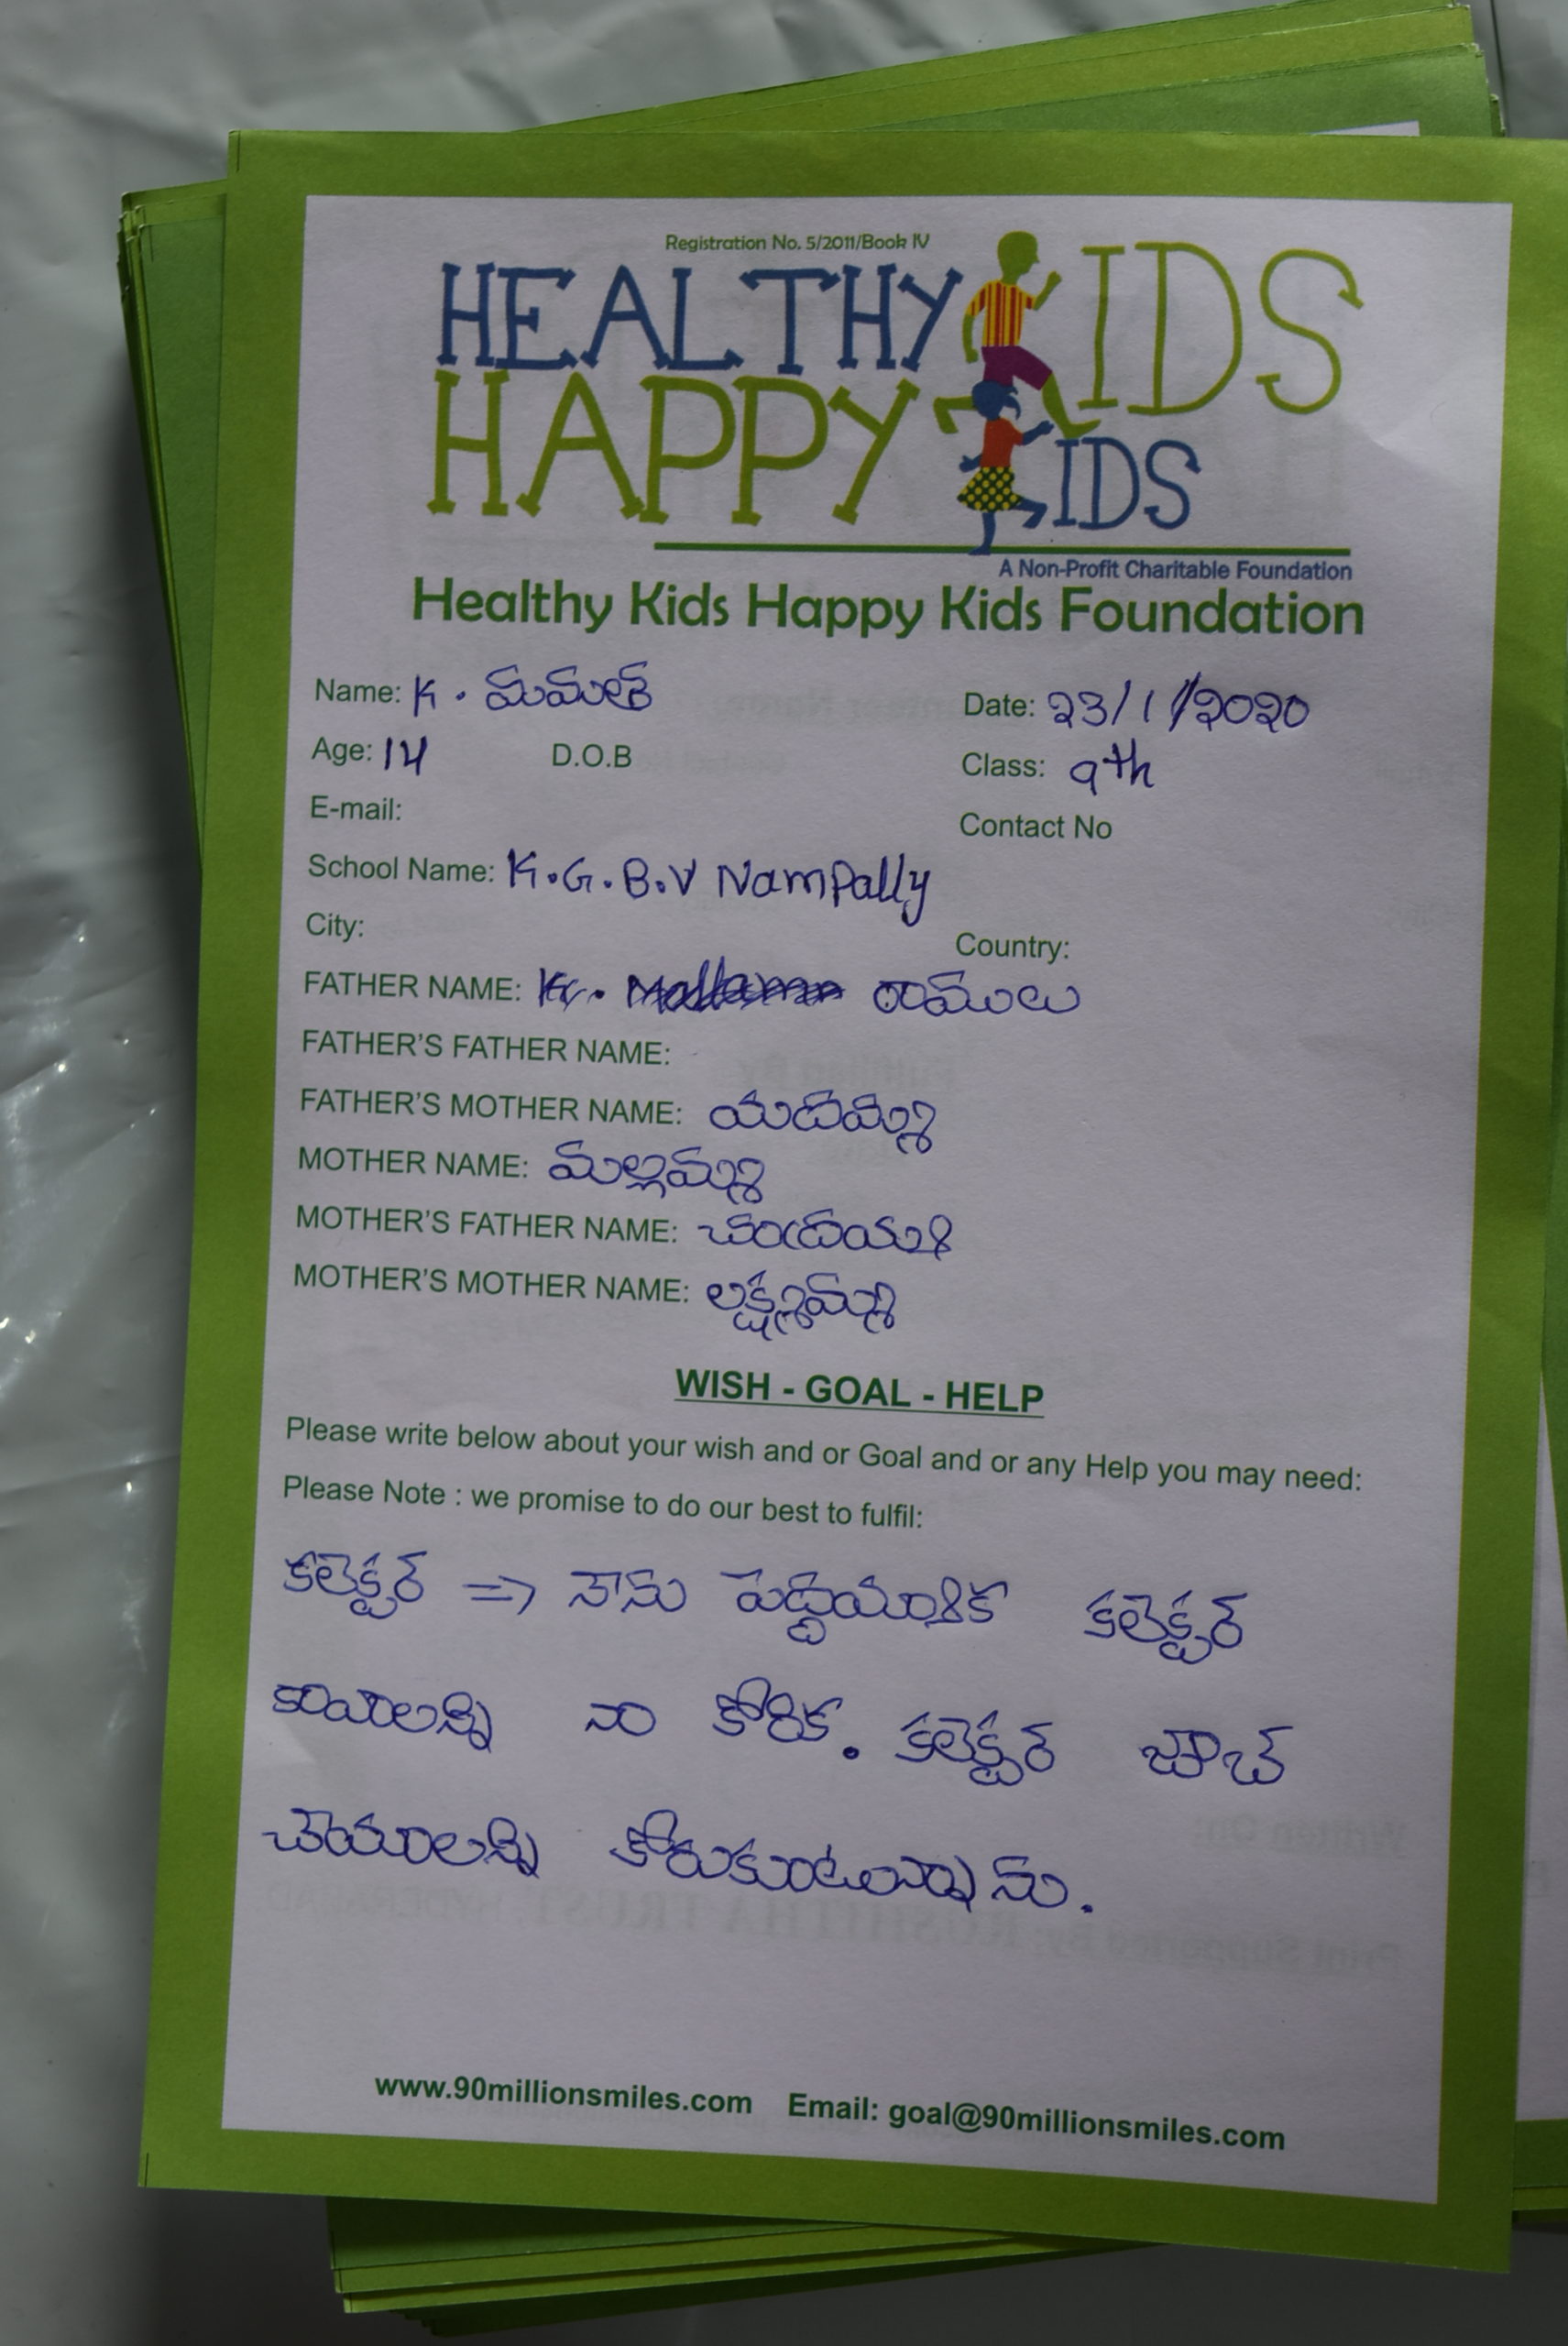 Registration No. 5/2011/Book IV
HEALTHY KIDS
HAPPY KIDS
A Non-Profit Charitable Foundation
Healthy Kids Happy Kids Foundation
Name: K. మమత Date: 23/1/2020
Age: 14 D.O.B Class: 9th
E-mail: Contact No
School Name: K.G.B.V Nampally
City: Country:
FATHER NAME: రాములు
FATHER'S FATHER NAME:
FATHER'S MOTHER NAME: యదమ్మ
MOTHER NAME: మల్లమ్మ
MOTHER'S FATHER NAME: చంద్రయ్య
MOTHER'S MOTHER NAME: లక్ష్మమ్మ
WISH - GOAL - HELP
Please write below about your wish and or Goal and or any Help you may need:
Please Note : we promise to do our best to fulfil:
కలెక్టర్ => నాను పెద్దయ్యాక కలెక్టర్
కావాలన్ని నా కోరిక. కలెక్టర్ జాబ్
చేయాలన్ని కోరుకుంటున్నాను.
www.90millionsmiles.com Email: goal@90millionsmiles.com